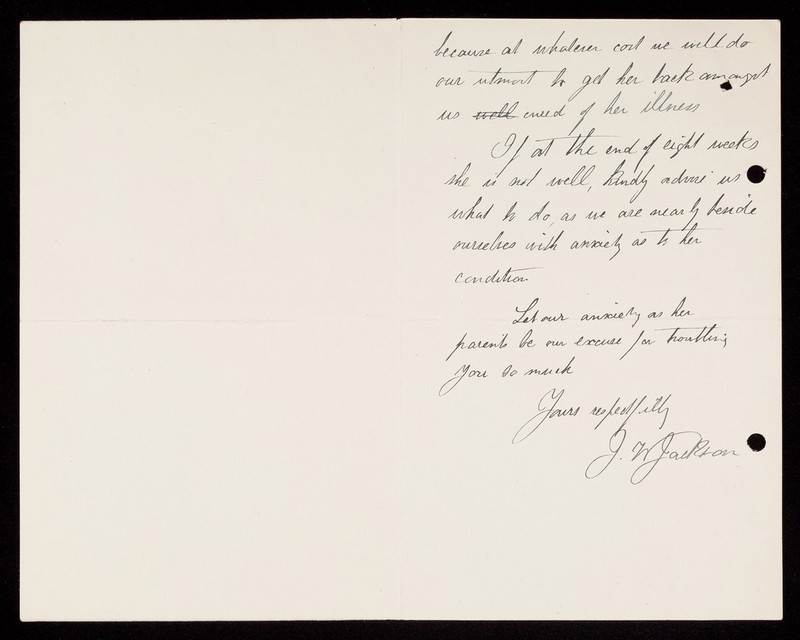 because at whatever cost we will do
our utmost to get her back amongst
us well cured of her illness
If at the end of eight weeks
she is not well, kindly advise us
what to do, as we are nearly beside
ourselves with anxiety as to her
condition
Let our anxiety as her
parents be our excuse for troubling
you so much
Yours respectfully
J. W. Jackson